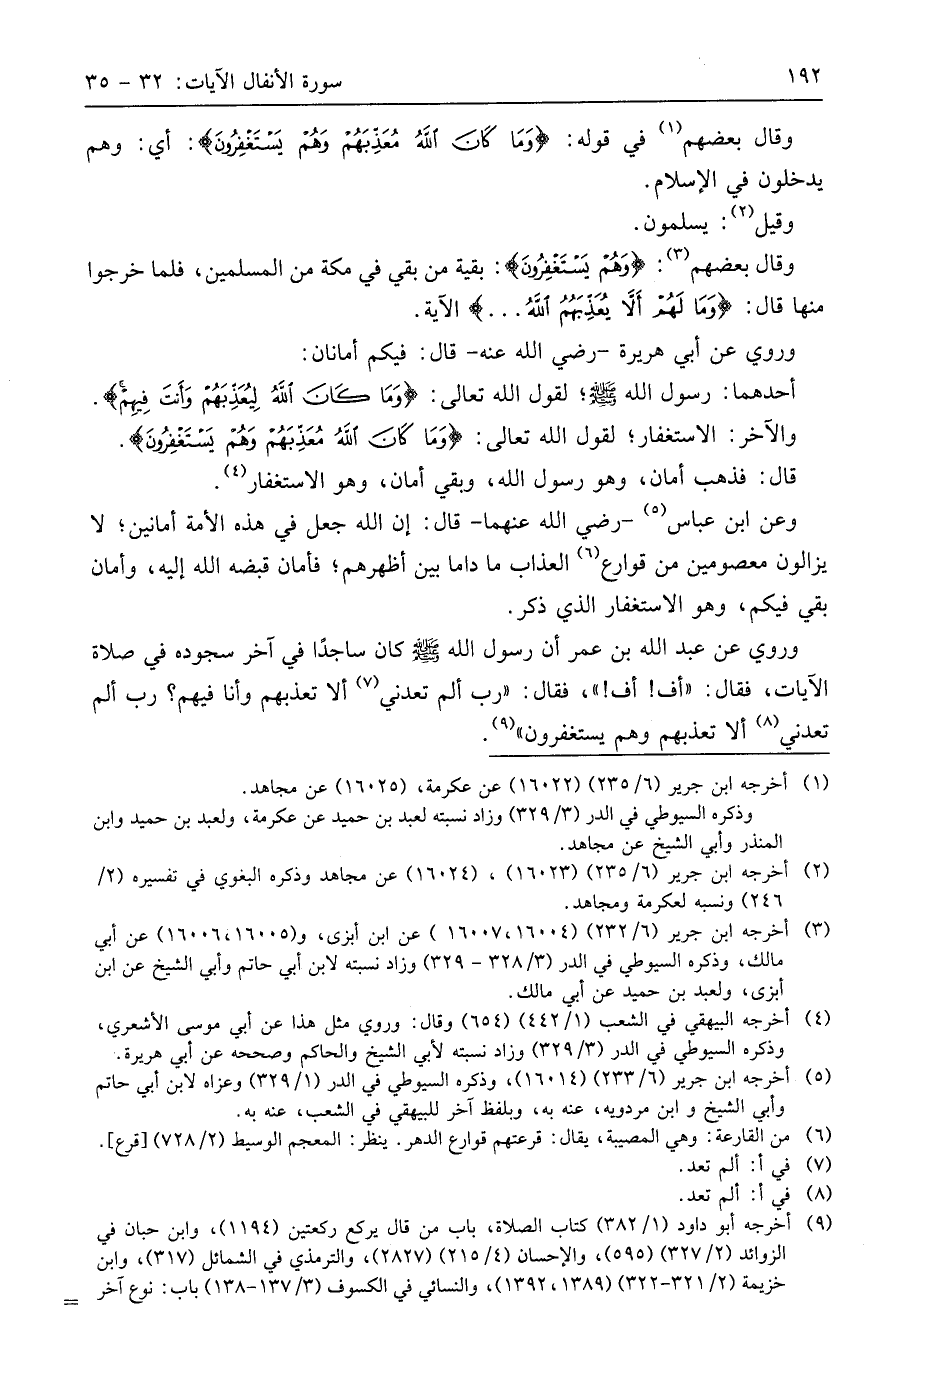 ١٩٢
سورة الأنفال الآيات: ٣٢ - ٣٥
وقال بعضهم(١) في قوله: ﴿وَمَا كَانَ ٱللَّهُ مُعَذِّبَهُمْ وَهُمْ يَسْتَغْفِرُونَ﴾: أي: وهم
يدخلون في الإسلام.
وقيل(٢): يسلمون.
وقال بعضهم(٣): ﴿وَهُمْ يَسْتَغْفِرُونَ﴾: بقية من بقي في مكة من المسلمين، فلما خرجوا
منها قال: ﴿وَمَا لَهُمْ أَلَّا يُعَذِّبَهُمُ ٱللَّهُ . . .﴾ الآية.
وروي عن أبي هريرة -رضي الله عنه- قال: فيكم أمانان:
أحدهما: رسول الله ﷺ؛ لقول الله تعالى: ﴿وَمَا كَانَ ٱللَّهُ لِيُعَذِّبَهُمْ وَأَنتَ فِيهِمْۚ﴾.
والآخر: الاستغفار؛ لقول الله تعالى: ﴿وَمَا كَانَ ٱللَّهُ مُعَذِّبَهُمْ وَهُمْ يَسْتَغْفِرُونَ﴾.
قال: فذهب أمان، وهو رسول الله، وبقي أمان، وهو الاستغفار(٤).
وعن ابن عباس(٥) -رضي الله عنهما- قال: إن الله جعل في هذه الأمة أمانين؛ لا
يزالون معصومين من قوارع(٦) العذاب ما داما بين أظهرهم؛ فأمان قبضه الله إليه، وأمان
بقي فيكم، وهو الاستغفار الذي ذكر.
وروي عن عبد الله بن عمر أن رسول الله ﷺ كان ساجدًا في آخر سجوده في صلاة
الآيات، فقال: «أف! أف!»، فقال: «رب ألم تعدني(٧) ألا تعذبهم وأنا فيهم؟ رب ألم
تعدني(٨) ألا تعذبهم وهم يستغفرون»(٩).
(١) أخرجه ابن جرير (٦/ ٢٣٥) (١٦٠٢٢) عن عكرمة، (١٦٠٢٥) عن مجاهد.
وذكره السيوطي في الدر (٣/ ٣٢٩) وزاد نسبته لعبد بن حميد عن عكرمة، ولعبد بن حميد وابن
المنذر وأبي الشيخ عن مجاهد.
(٢) أخرجه ابن جرير (٦/ ٢٣٥) (١٦٠٢٣) ، (١٦٠٢٤) عن مجاهد وذكره البغوي في تفسيره (٢/
٢٤٦) ونسبه لعكرمة ومجاهد.
(٣) أخرجه ابن جرير (٦/ ٢٣٢) (١٦٠٠٤،١٦٠٠٧ ) عن ابن أبزى، و(١٦٠٠٥،١٦٠٠٦) عن أبي
مالك، وذكره السيوطي في الدر (٣/ ٣٢٨ - ٣٢٩) وزاد نسبته لابن أبي حاتم وأبي الشيخ عن ابن
أبزى، ولعبد بن حميد عن أبي مالك.
(٤) أخرجه البيهقي في الشعب (١/ ٤٤٢) (٦٥٤) وقال: وروي مثل هذا عن أبي موسى الأشعري،
وذكره السيوطي في الدر (٣/ ٣٢٩) وزاد نسبته لأبي الشيخ والحاكم وصححه عن أبي هريرة.
(٥) أخرجه ابن جرير (٦/ ٢٣٣) (١٦٠١٤)، وذكره السيوطي في الدر (١/ ٣٢٩) وعزاه لابن أبي حاتم
وأبي الشيخ و ابن مردويه، عنه به، وبلفظ آخر للبيهقي في الشعب، عنه به.
(٦) من القارعة: وهي المصيبة، يقال: قرعتهم قوارع الدهر. ينظر: المعجم الوسيط (٢/ ٧٢٨) [قرع].
(٧) في أ: ألم تعد.
(٨) في أ: ألم تعد.
(٩) أخرجه أبو داود (١/ ٣٨٢) كتاب الصلاة، باب من قال يركع ركعتين (١١٩٤)، وابن حبان في
الزوائد (٢/ ٣٢٧) (٥٩٥)، والإحسان (٤/ ٢١٥) (٢٨٢٧)، والترمذي في الشمائل (٣١٧)، وابن
خزيمة (٢/ ٣٢١-٣٢٢) (١٣٨٩،١٣٩٢)، والنسائي في الكسوف (٣/ ١٣٧-١٣٨) باب: نوع آخر =